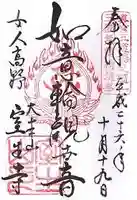 奉拝
平成二十六年
十月十九日
如意輪観世音
女人高野
大本山
室生寺